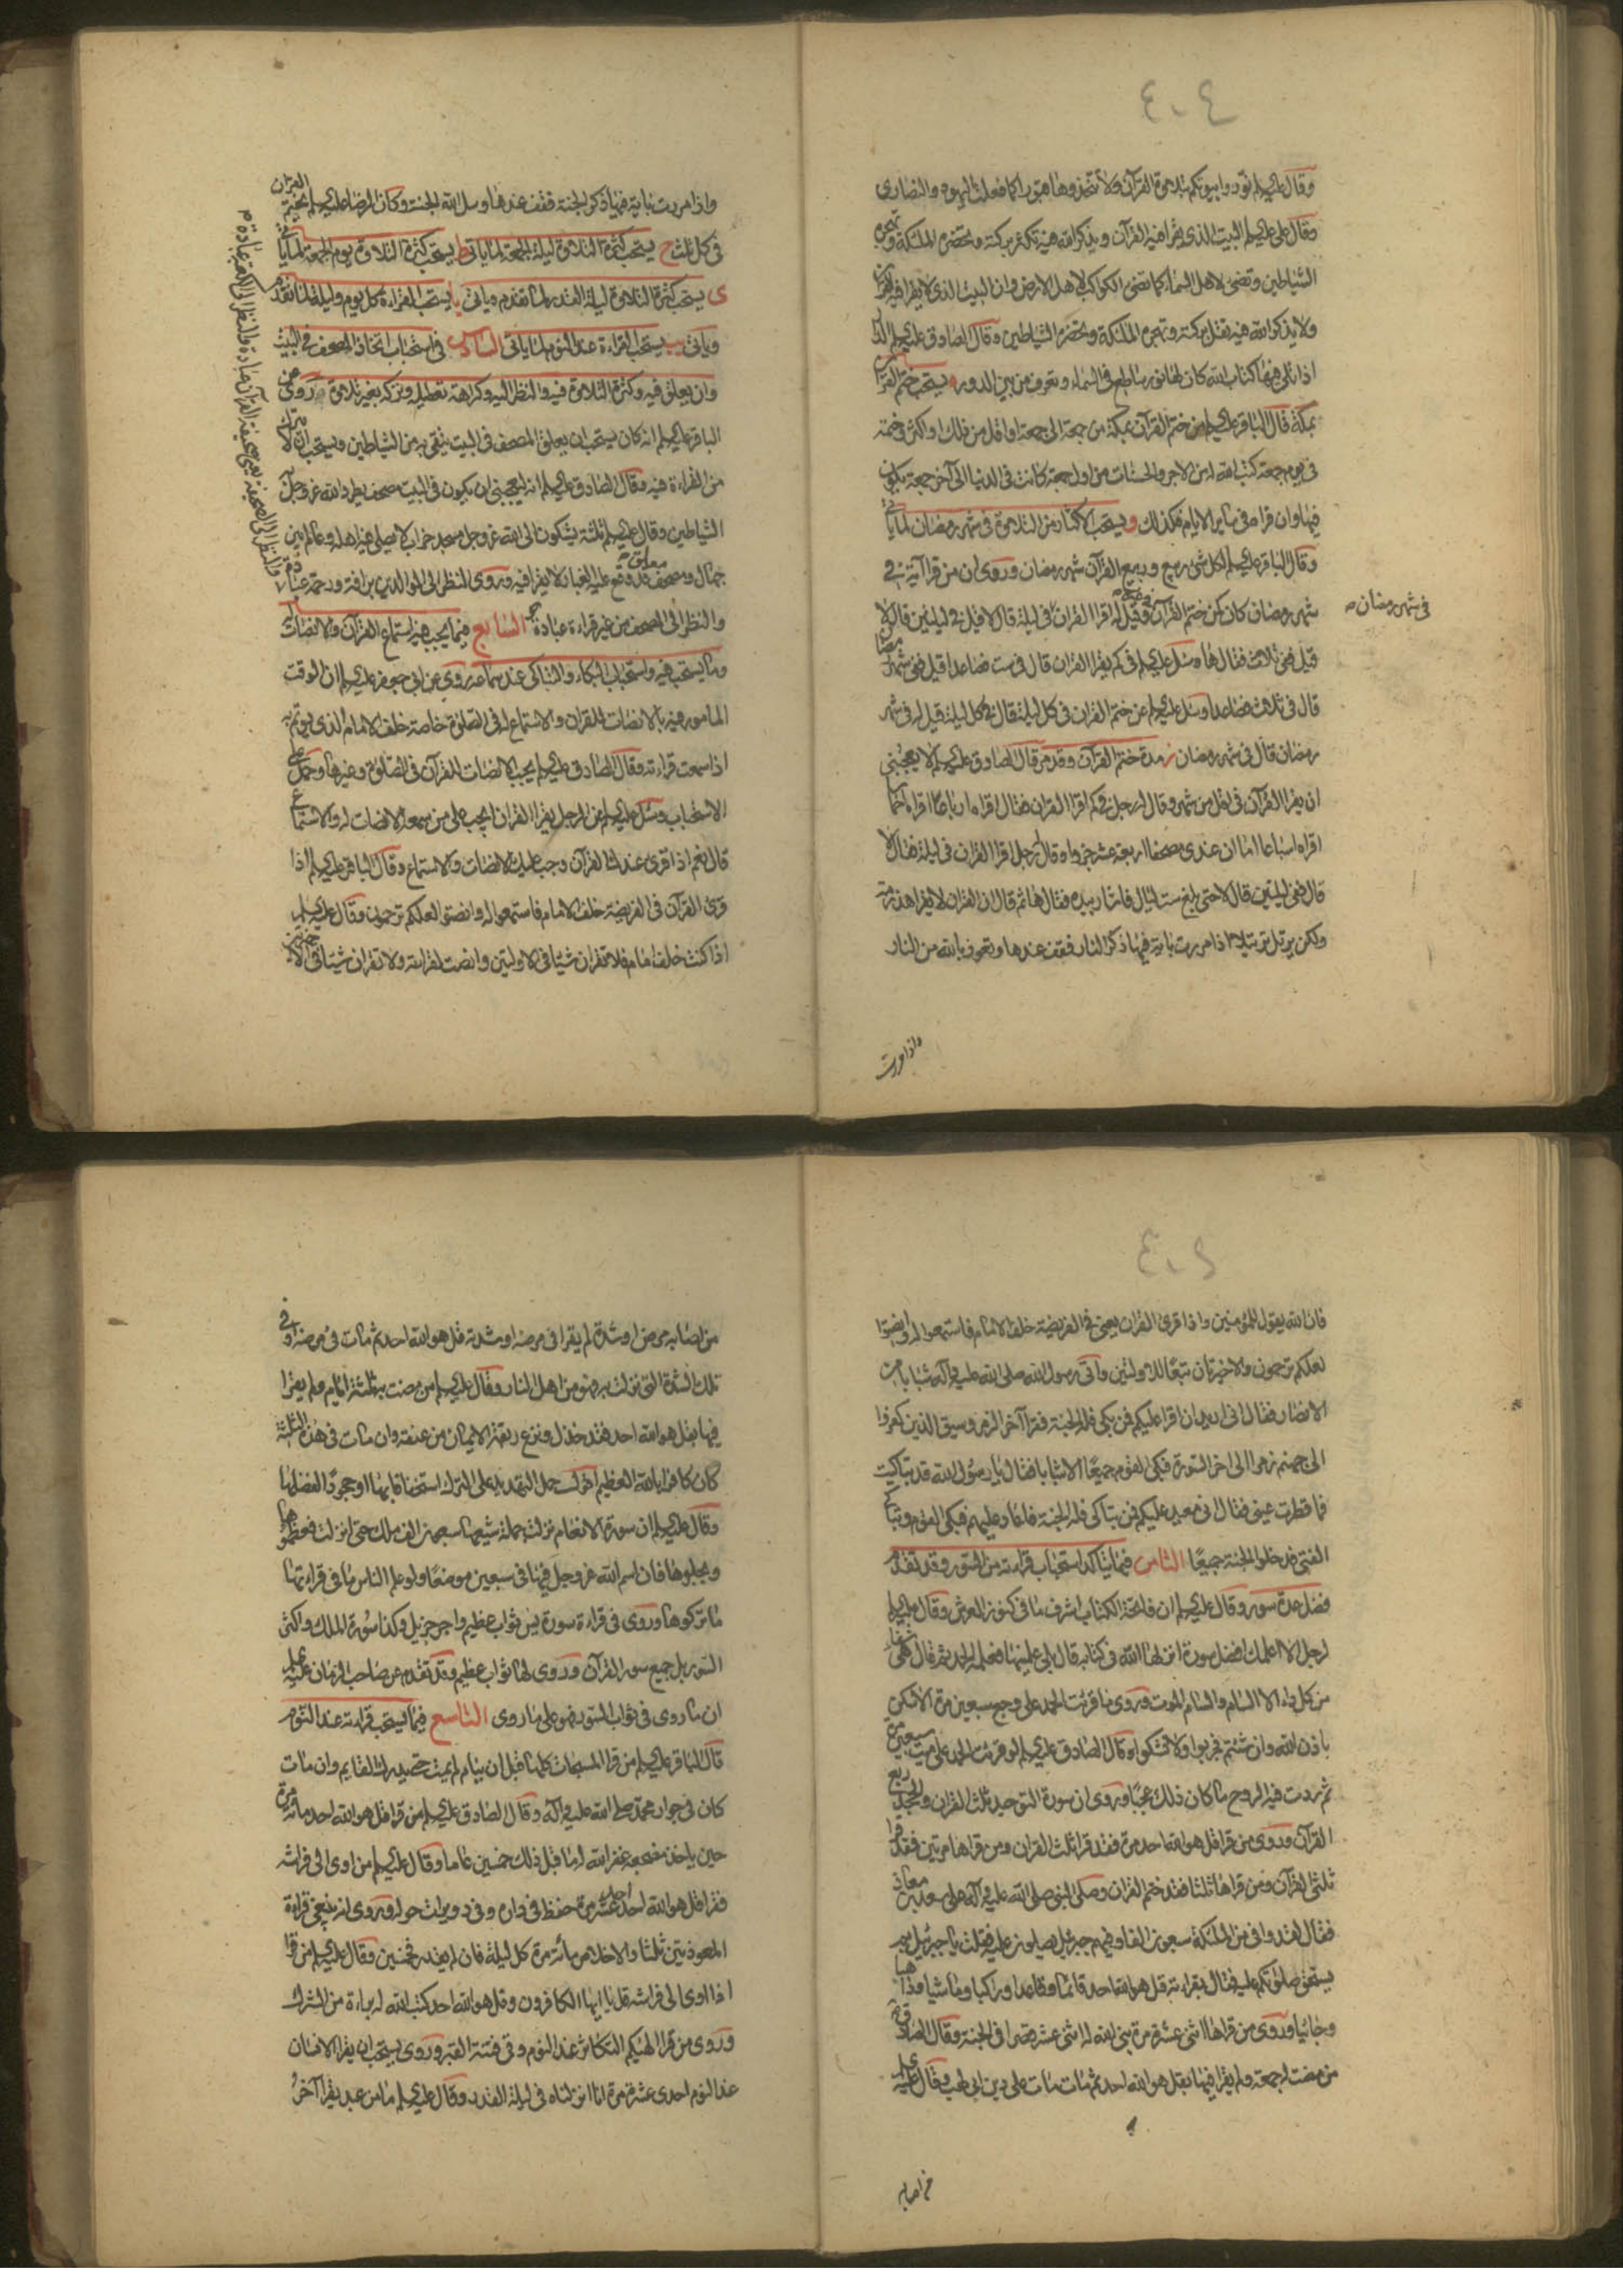 ٤٠٤
وقال عليه السلام نوروا بيوتكم بتلاوة القرآن ولا تتخذوها قبورا كما فعلت اليهود والنصارى
وقال علي عليه السلام البيت الذي يقرا فيه القرآن ويذكر الله فيه تكثر بركته وتحضره الملئكة وتهجره
الشياطين وتضئ لاهل السماء كما تضئ الكواكب لاهل الارض وان البيت الذي لا يقرا فيه القرآن
ولا يذكر الله فيه تقل بركته وتهجره الملئكة وتحضره الشياطين وقال الصادق عليه السلام الدار
اذا تلى فيها كتاب الله كان لها نور ساطع في السماء وتعرف من بين الدور ه يستحب ختم القرآن
بمكة قال الباقر عليه السلام من ختم القرآن بمكة من جمعة الى جمعة او اقل من ذلك واكثر وختمه
في يوم جمعة كتب الله له من الاجر والحسنات من اول جمعة كانت في الدنيا الى آخر جمعة يكون
فيها وان قراه في سائر الايام فكذلك و يستحب الاكثار من التلاوة في شهر رمضان لما يأتي
وقال الباقر عليه السلام لكل شئ ربيع وربيع القرآن شهر رمضان وروى ان من قرا آية في
شهر رمضان كان كمن ختم القرآن في غيره وقيل له اقرا القرآن في ليلة قال لا قيل في ليلتين قال لا
في شهر رمضان
قيل ففي ثلاث فقال ها وسئل عليه السلام في كم يقرا القران قال في ست فصاعدا قيل ففي شهر رمضان
قال في ثلاث فصاعدا وسئل عليه السلام عن ختم القران في كل ليلة قال في كل ليلة قيل له في شهر
رمضان قال في شهر رمضان ز مدة ختم القرآن وقد مر قال الصادق عليه السلام لا يعجبني
ان يقرا القرآن في اقل من شهر وقال له رجل في كم اقرا القران فقال اقراه ارباعا اقراه اخماسا
اقراه اسباعا اما ان عندي مصحفا اربعة عشر جزوا وقال رجل اقرا القران في ليلة فقال لا
قال ففي ليلتين قال لا حتى بلغ ست ليال فاشار بيده فقال ها ثم قال ان القران لا يقرا هذرمة
ولكن يرتل ترتيلا اذا مررت باية فيها ذكر النار فقف عندها وتعوذ بالله من النار
واذا مررت
واذا مررت باية فيها ذكر الجنة فقف عندها وسل الله الجنة وكان الرضا عليه السلام يختم القران
في كل ثلث ح يستحب كثرة التلاوة ليلة الجمعة لما ياتى ط يستحب كثرة التلاوة يوم الجمعة لما يأتي
ى يستحب كثرة التلاوة ليلة القدر لما تقدم وياتى يا يستحب القراءة كل يوم وليلة لما تقدم
وياتى يب يستحب القراءة عند النوم لما ياتى السادس في استحباب اتخاذ المصحف في البيت
وان يعلق فيه وكثرة التلاوة فيه والنظر اليه وكراهة تعطيله وتركه بغير تلاوة روى عن
الباقر عليه السلام انه كان يستحب ان يعلق المصحف في البيت يتقى به من الشياطين ويستحب ان لا يترك
من القراءة فيه وقال الصادق عليه السلام انه ليعجبني ان يكون في البيت مصحف يطرد الله عز وجل به
الشياطين وقال عليه السلام ثلثة يشكون الى الله عز وجل مسجد خراب لا يصلي فيه اهله وعالم بين
جهال ومصحف معلق قد وقع عليه الغبار لا يقرا فيه وروى النظر الى الوالدين برافة ورحمة عبادة
والنظر الى المصحف من غير قراءة عبادة السابع فيما يجب فيه استماع القرآن والانصات له
وما يستحب فيه واستحباب البكاء والتباكى عند سماعه روى عن ابي جعفر عليه السلام ان الوقت
المامور فيه بالانصات للقران والاستماع له في الصلوة خاصة خلف الامام الذي يؤتم به
اذا سمعت قراءته وقال الصادق عليه السلام يجب الانصات للقرآن في الصلوة وغيرها وحمل على
الاستحباب وسئل عليه السلام عن الرجل يقرا القران ايجب على من سمعه الانصات له والاستماع
قال نعم اذا قرى عندك القرآن وجب عليك الانصات والاستماع وقال الباقر عليه السلام اذا
قرى القرآن في الفريضة خلف الامام فاستمعوا له وانصتوا لعلكم ترحمون وقال عليه السلام
اذا كنت خلف امام فلا تقران شيئا في الاولتين وانصت لقراءته ولا تقران شيئا في الاخيرتين
فان الله يقول للمؤمنين واذا قرى القران يعني في الفريضة خلف الامام فاستمعوا له وانصتوا
لعلكم ترحمون والاخيرتان تبعا للاولتين واتى رسول الله صلى الله عليه وآله شبابا من
الانصار فقال اني اريد ان اقرا عليكم فمن بكى فله الجنة فقرا آخر الزمر وسيق الذين كفروا
الى جهنم زمرا الى اخر السورة فبكى القوم جميعا الا شابا فقال يا رسول الله قد تباكيت
فما قطرت عيني فقال اني معيد عليكم فمن تباكى فله الجنة فاعاد عليهم فبكى القوم وتباكى
الفتى فدخلوا الجنة جميعا الثامن فيما يتاكد استحباب قراءته من السور وقد تقدم
فضل عدة سور وقال عليه السلام ان فاتحة الكتاب اشرف ما في كنوز العرش وقال عليه السلام
لرجل الا اعلمك افضل سورة انزلها الله في كتابه قال بلى علمنيها فعلمه الحمد ثم قال هي شفاء
من كل داء الا السام والسام الموت وروى ما قرئت الحمد على وجع سبعين مرة الا سكن
باذن الله وان شئتم فجربوا ولا تشكوا وقال الصادق عليه السلام لو قرئت الحمد على ميت سبعين مرة
ثم ردت فيه الروح ما كان ذلك عجبا وروى ان سورة التوحيد ثلث القران والجحد ربع
القرآن وروى من قرا قل هو الله احد مرة فقد قرا ثلث القران ومن قراها مرتين فقد قرا
ثلثي القرآن ومن قراها ثلثا فقد ختم القران وصلى النبي صلى الله عليه وآله على سعد بن معاذ
فقال لقد وافى من الملئكة سبعون الفا وفيهم جبرئيل يصلون عليه فقلت يا جبرئيل بم
يستحق صلوتكم عليه فقال بقراءته قل هو الله احد قائما وقاعدا وراكبا وماشيا وذاهبا
وجائيا وروى من قراها اثنى عشرة مرة بنى الله له اثنى عشر قصرا في الجنة وقال الصادق
من مضت له جمعة ولم يقرا فيها بقل هو الله احد ثم مات مات على دين ابي لهب وقال عليه السلام
من اصابه
من اصابه مرض او شدة لم يقرا في مرضه او شدته قل هو الله احد ثم مات في مرضه او في
تلك الشدة التي نزلت به فهو من اهل النار وقال عليه السلام من مضت به ثلثة ايام ولم يقرا
فيها بقل هو الله احد فقد خذل ونزع ربقة الايمان من عنقه وان مات في هذه الثلثة
كان كافرا بالله العظيم اقول حمل التهديد على الترك استخفافا بها او جحودا لفضلها
وقال عليه السلام ان سورة الانعام نزلت جملة شيعها سبعون الف ملك حتى انزلت فعظموها
وبجلوها فان اسم الله عز وجل فيها في سبعين موضعا ولو علم الناس ما في قراءتها
ما تركوها وروى في قراءة سورة يس ثواب عظيم واجر جزيل وكذا سورة الملك واكثر
السور بل جميع سور القرآن وروى لها ثواب عظيم وقد تقدم عن صاحب الزمان عليه السلام
ان ما روى في ثواب السور فهو على ما روى التاسع فيما يستحب قراءته عند النوم
قال الباقر عليه السلام من قرا المسبحات كلها قبل ان ينام لم يمت حتى يدرك القايم وان مات
كان في جوار محمد صلى الله عليه وآله وقال الصادق عليه السلام من قرا قل هو الله احد مائة مرة
حين ياخذ مضجعه غفر الله له ما قبل ذلك خمسين عاما وقال عليه السلام من اوى الى فراشه
فقرا قل هو الله احد احدى عشرة مرة حفظ في داره وفي دويرات حوله وروى انه ينبغي قراءة
المعوذتين ثلثا والاخلاص مائة مرة كل ليلة فان لم يقدر فخمسين وقال عليه السلام من قرا
اذا اوى الى فراشه قل يا ايها الكافرون وقل هو الله احد كتب الله له براءة من الشرك
وروى من قرا الهيكم التكاثر عند النوم وقى فتنة القبر وروى يستحب ان يقرا الانسان
عند النوم احدى عشرة مرة انا انزلناه في ليلة القدر وقال عليه السلام ما من عبد يقرا آخر